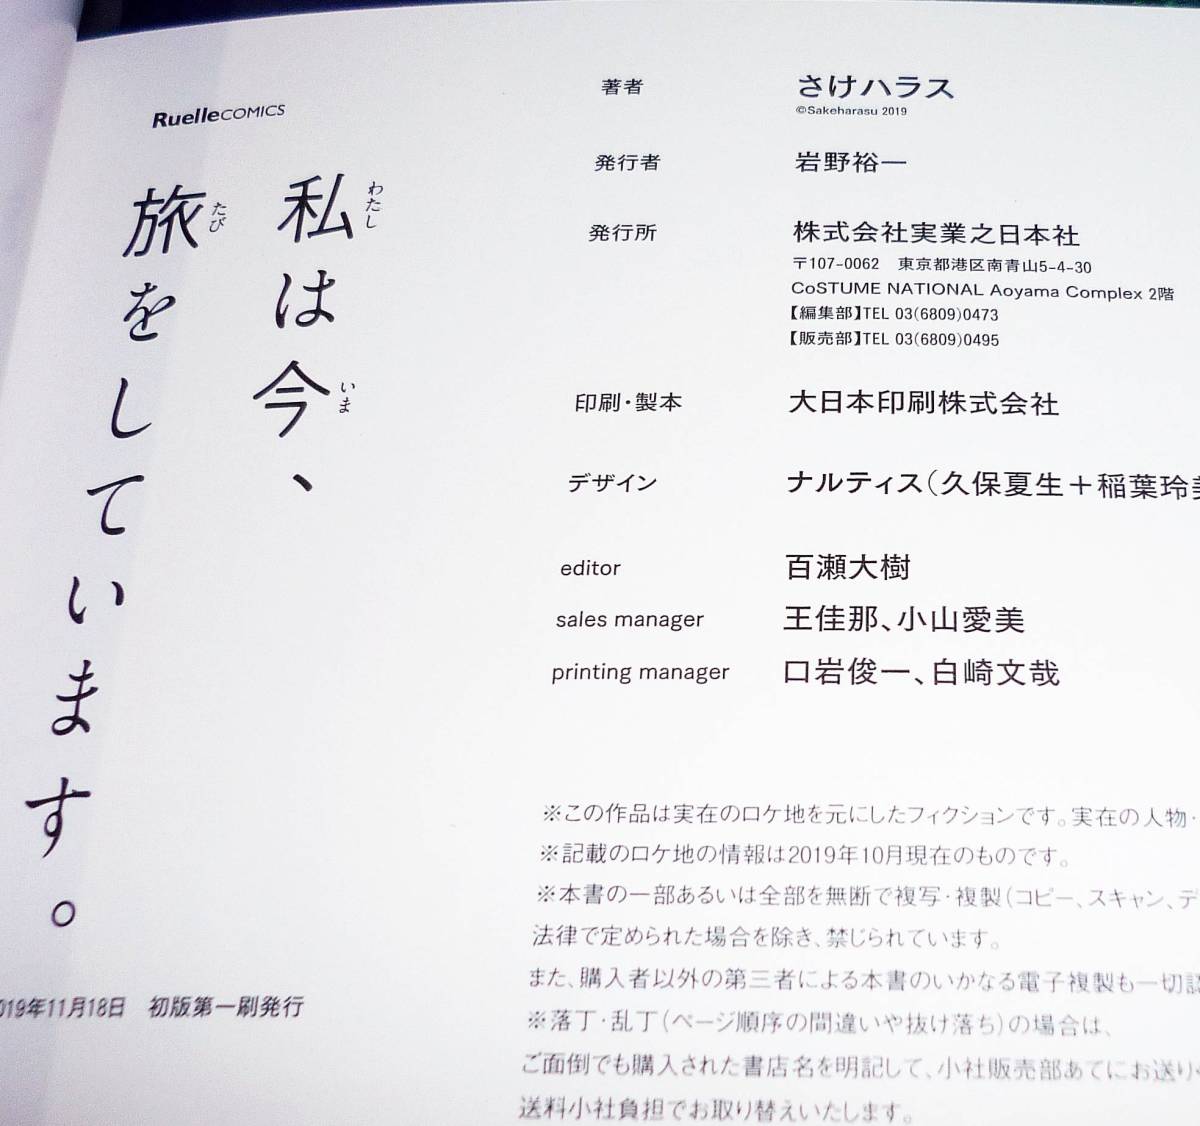 RuelleCOMICS
私は今、
わたし
いま
旅をしています。
たび
2019年11月18日　初版第一刷発行
著者　さけハラス
©Sakeharasu 2019
発行者　岩野裕一
発行所　株式会社実業之日本社
〒107-0062　東京都港区南青山5-4-30
CoSTUME NATIONAL Aoyama Complex 2階
【編集部】TEL 03(6809)0473
【販売部】TEL 03(6809)0495
印刷・製本　大日本印刷株式会社
デザイン　ナルティス（久保夏生＋稲葉玲美
editor　百瀬大樹
sales manager　王佳那、小山愛美
printing manager　口岩俊一、白崎文哉
※この作品は実在のロケ地を元にしたフィクションです。実在の人物・
※記載のロケ地の情報は2019年10月現在のものです。
※本書の一部あるいは全部を無断で複写・複製（コピー、スキャン、デ
法律で定められた場合を除き、禁じられています。
また、購入者以外の第三者による本書のいかなる電子複製も一切認
※落丁・乱丁（ページ順序の間違いや抜け落ち）の場合は、
ご面倒でも購入された書店名を明記して、小社販売部あてにお送りく
送料小社負担でお取り替えいたします。